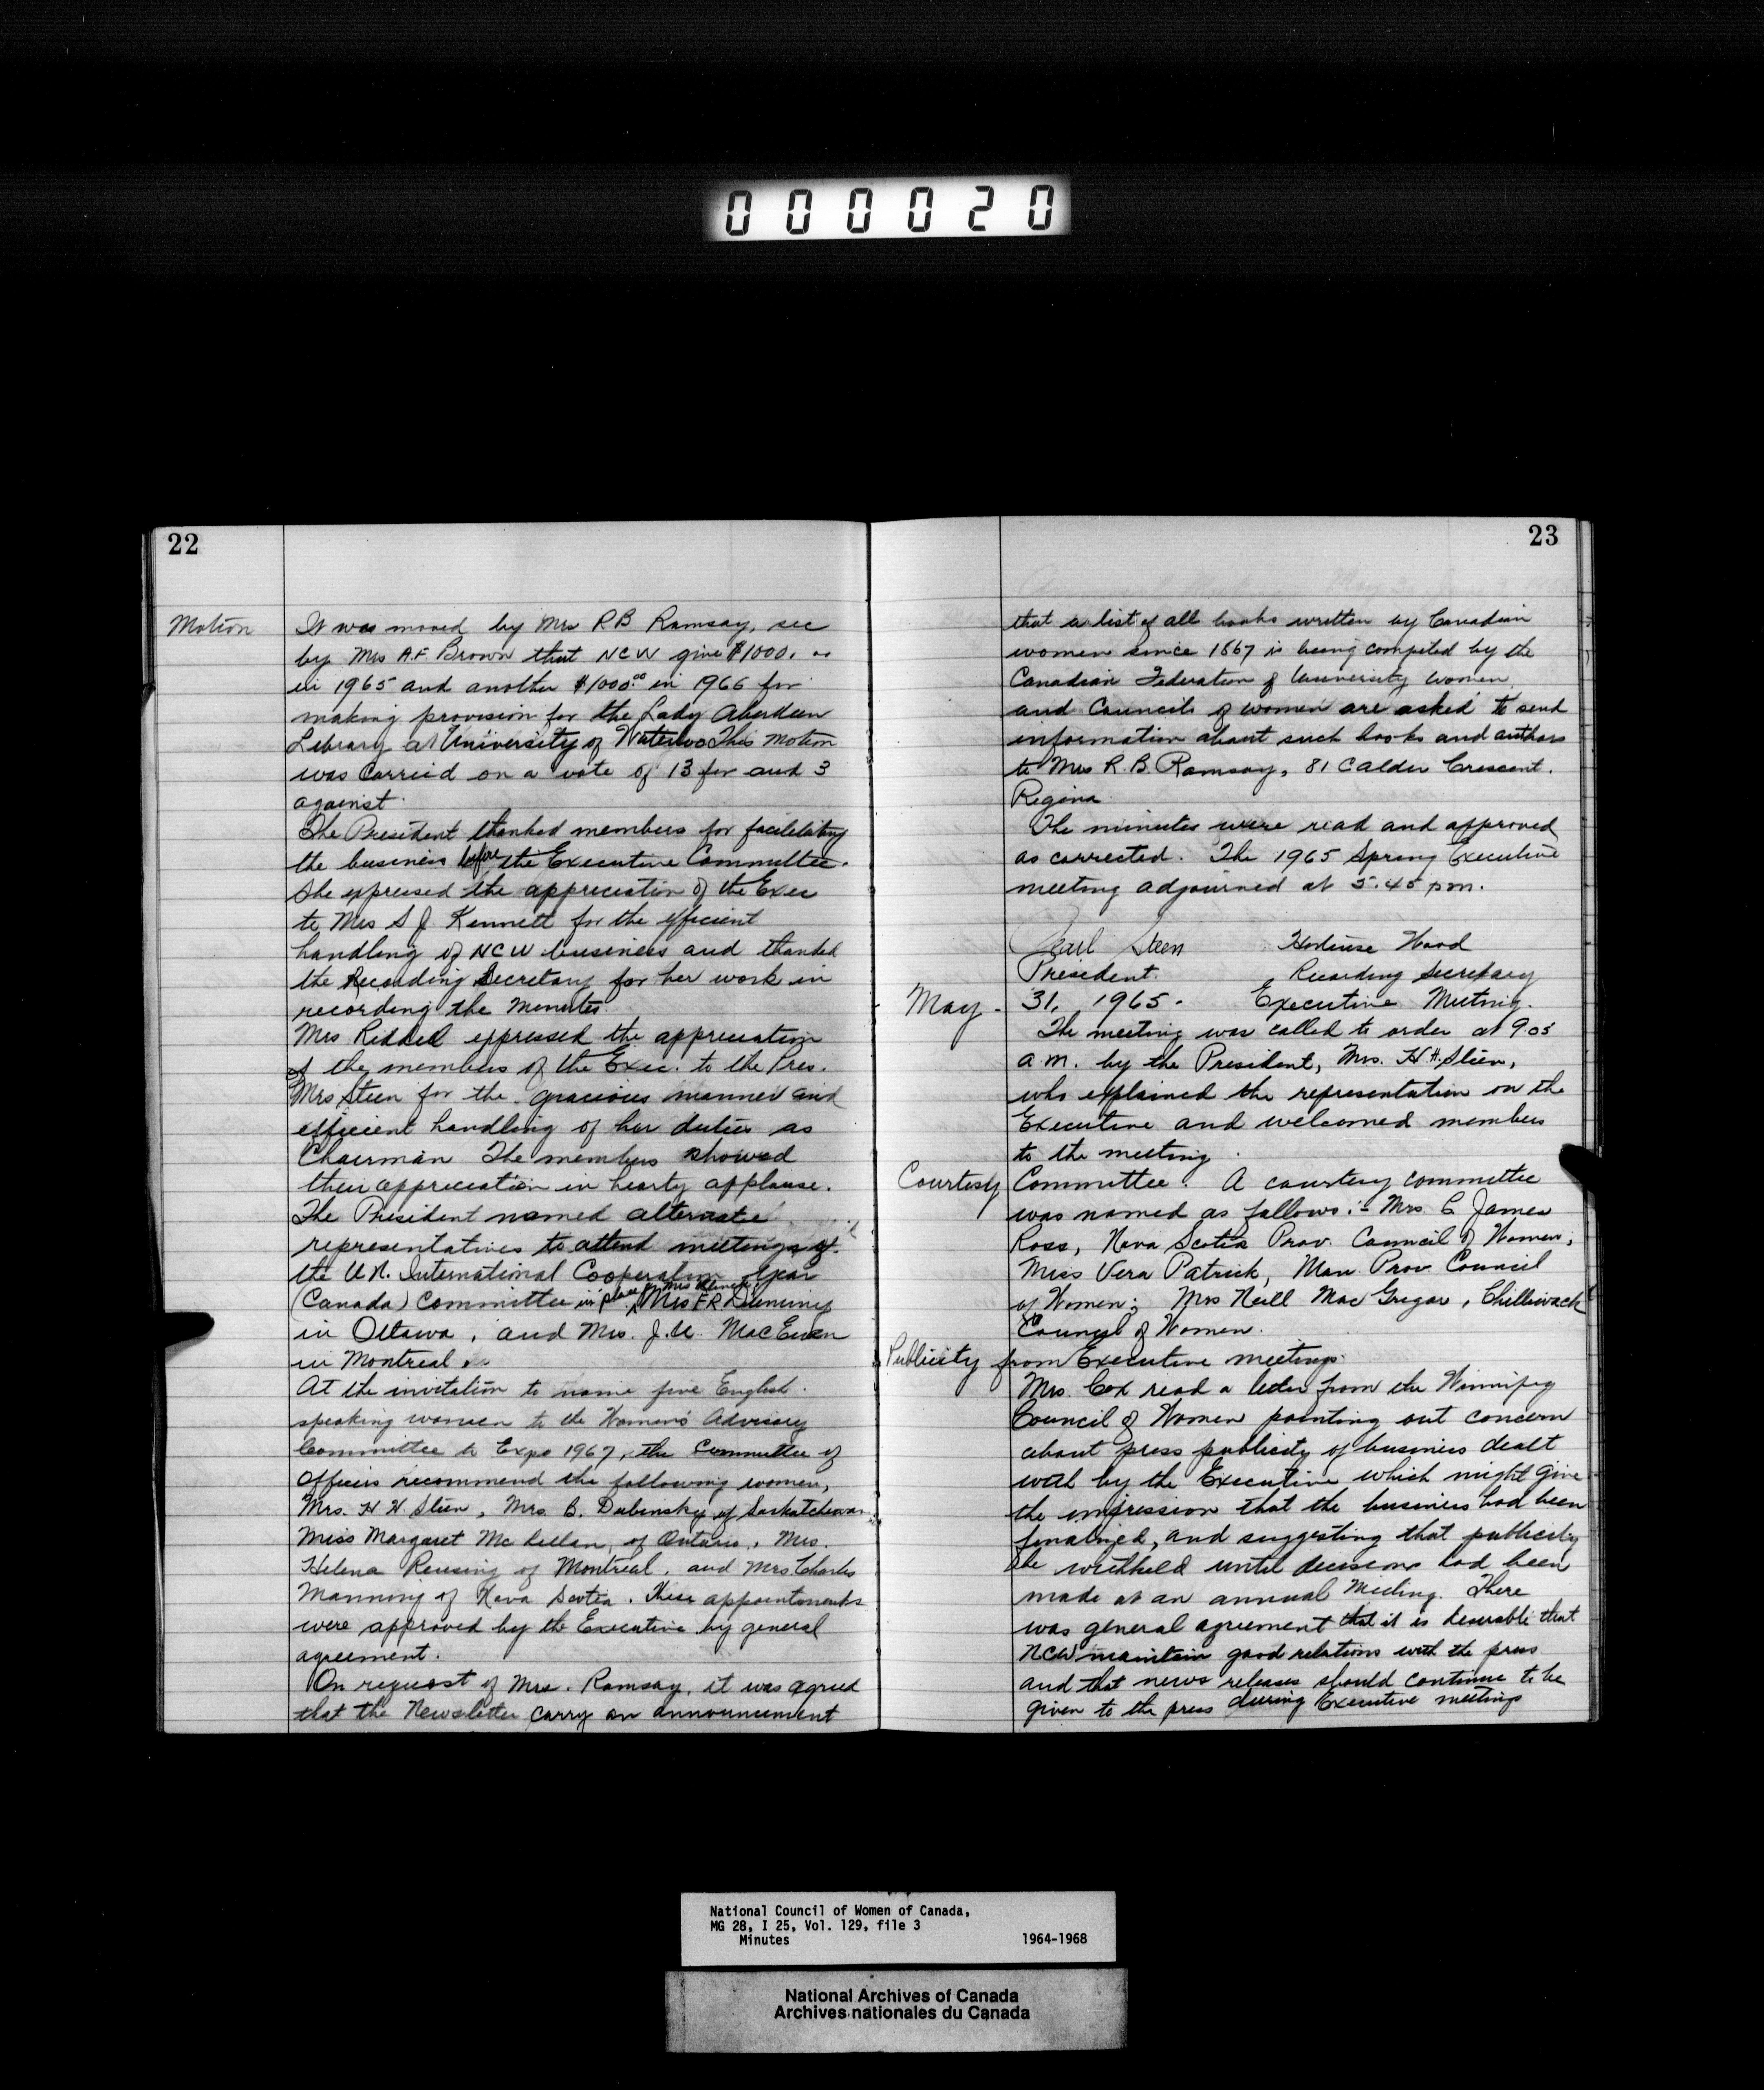 000020
22
Motion It was moved by Mrs R B Ramsay, sec
by Mrs A.F. Brown that NCW give $1000.
in 1965 and another $1000.00 in 1966 for
making provision for the Lady Aberdeen
Library at University of Waterloo This motion
was carried on a vote of 13 for and 3
against.
The President thanked members for facilitating
the business before the Executive Committee.
She expressed the appreciation of the Exec
to Mrs S J Kennett for the efficient
handling of NCW business and thanked
the Recording Secretary for her work in
recording the Minutes.
Mrs Riddell expressed the appreciation
of the members of the Exec. to the Pres.
Mrs Steen for the gracious manner and
efficient handling of her duties as
Chairman The members showed
their appreciation in hearty applause.
The President named alternate
representatives to attend meetings of
the U.N. International Cooperation Year
(Canada) Committee in place of Mrs F R Deming
in Ottawa, and Mrs. J. U. MacEwen
in Montreal.
At the invitation to name five English
speaking women to the Women's Advisory
Committee to Expo 1967, the Committee of
Officers recommend the following women,
Mrs. H H Steen, Mrs. B. Dubinsky of Saskatchewan,
Miss Margaret McLellan, of Ontario, Mrs.
Helena Reusing of Montreal, and Mrs. Charles
Manning of Nova Scotia. These appointments
were approved by the Executive by general
agreement.
On request of Mrs. Ramsay, it was agreed
that the Newsletter carry an announcement
23
that a list of all books written by Canadian
women since 1867 is being compiled by the
Canadian Federation of University women
and Councils of women are asked to send
information about such books and authors
to Mrs R. B. Ramsay, 81 Calder Crescent.
Regina.
The minutes were read and approved
as corrected. The 1965 Spring Executive
meeting adjourned at 5:45 pm.
Pearl Steen Hortense Wood
President. Recording Secretary
May - 31, 1965. Executive Meeting.
The meeting was called to order at 9.05
a.m. by the President, Mrs. H. H. Steen,
who explained the representation on the
Executive and welcomed members
to the meeting.
Courtesy Committee. A courtesy committee
was named as follows:- Mrs. C James
Ross, Nova Scotia Prov. Council of Women;
Miss Vera Patrick, Man. Prov Council
of Women; Mrs Neill MacGregor, Chilliwack
Council of Women.
Publicity from Executive meetings.
Mrs. Cox read a letter from the Winnipeg
Council of Women pointing out concern
about press publicity of business dealt
with by the Executive which might give
the impression that the business had been
finalized, and suggesting that publicity
be withheld until decisions had been
made at an annual Meeting. There
was general agreement that it is desirable that
NCW maintain good relations with the press
and that news releases should continue to be
given to the press during Executive meetings
National Council of Women of Canada,
MG 28, I 25, Vol. 129, file 3
Minutes 1964-1968
National Archives of Canada
Archives nationales du Canada